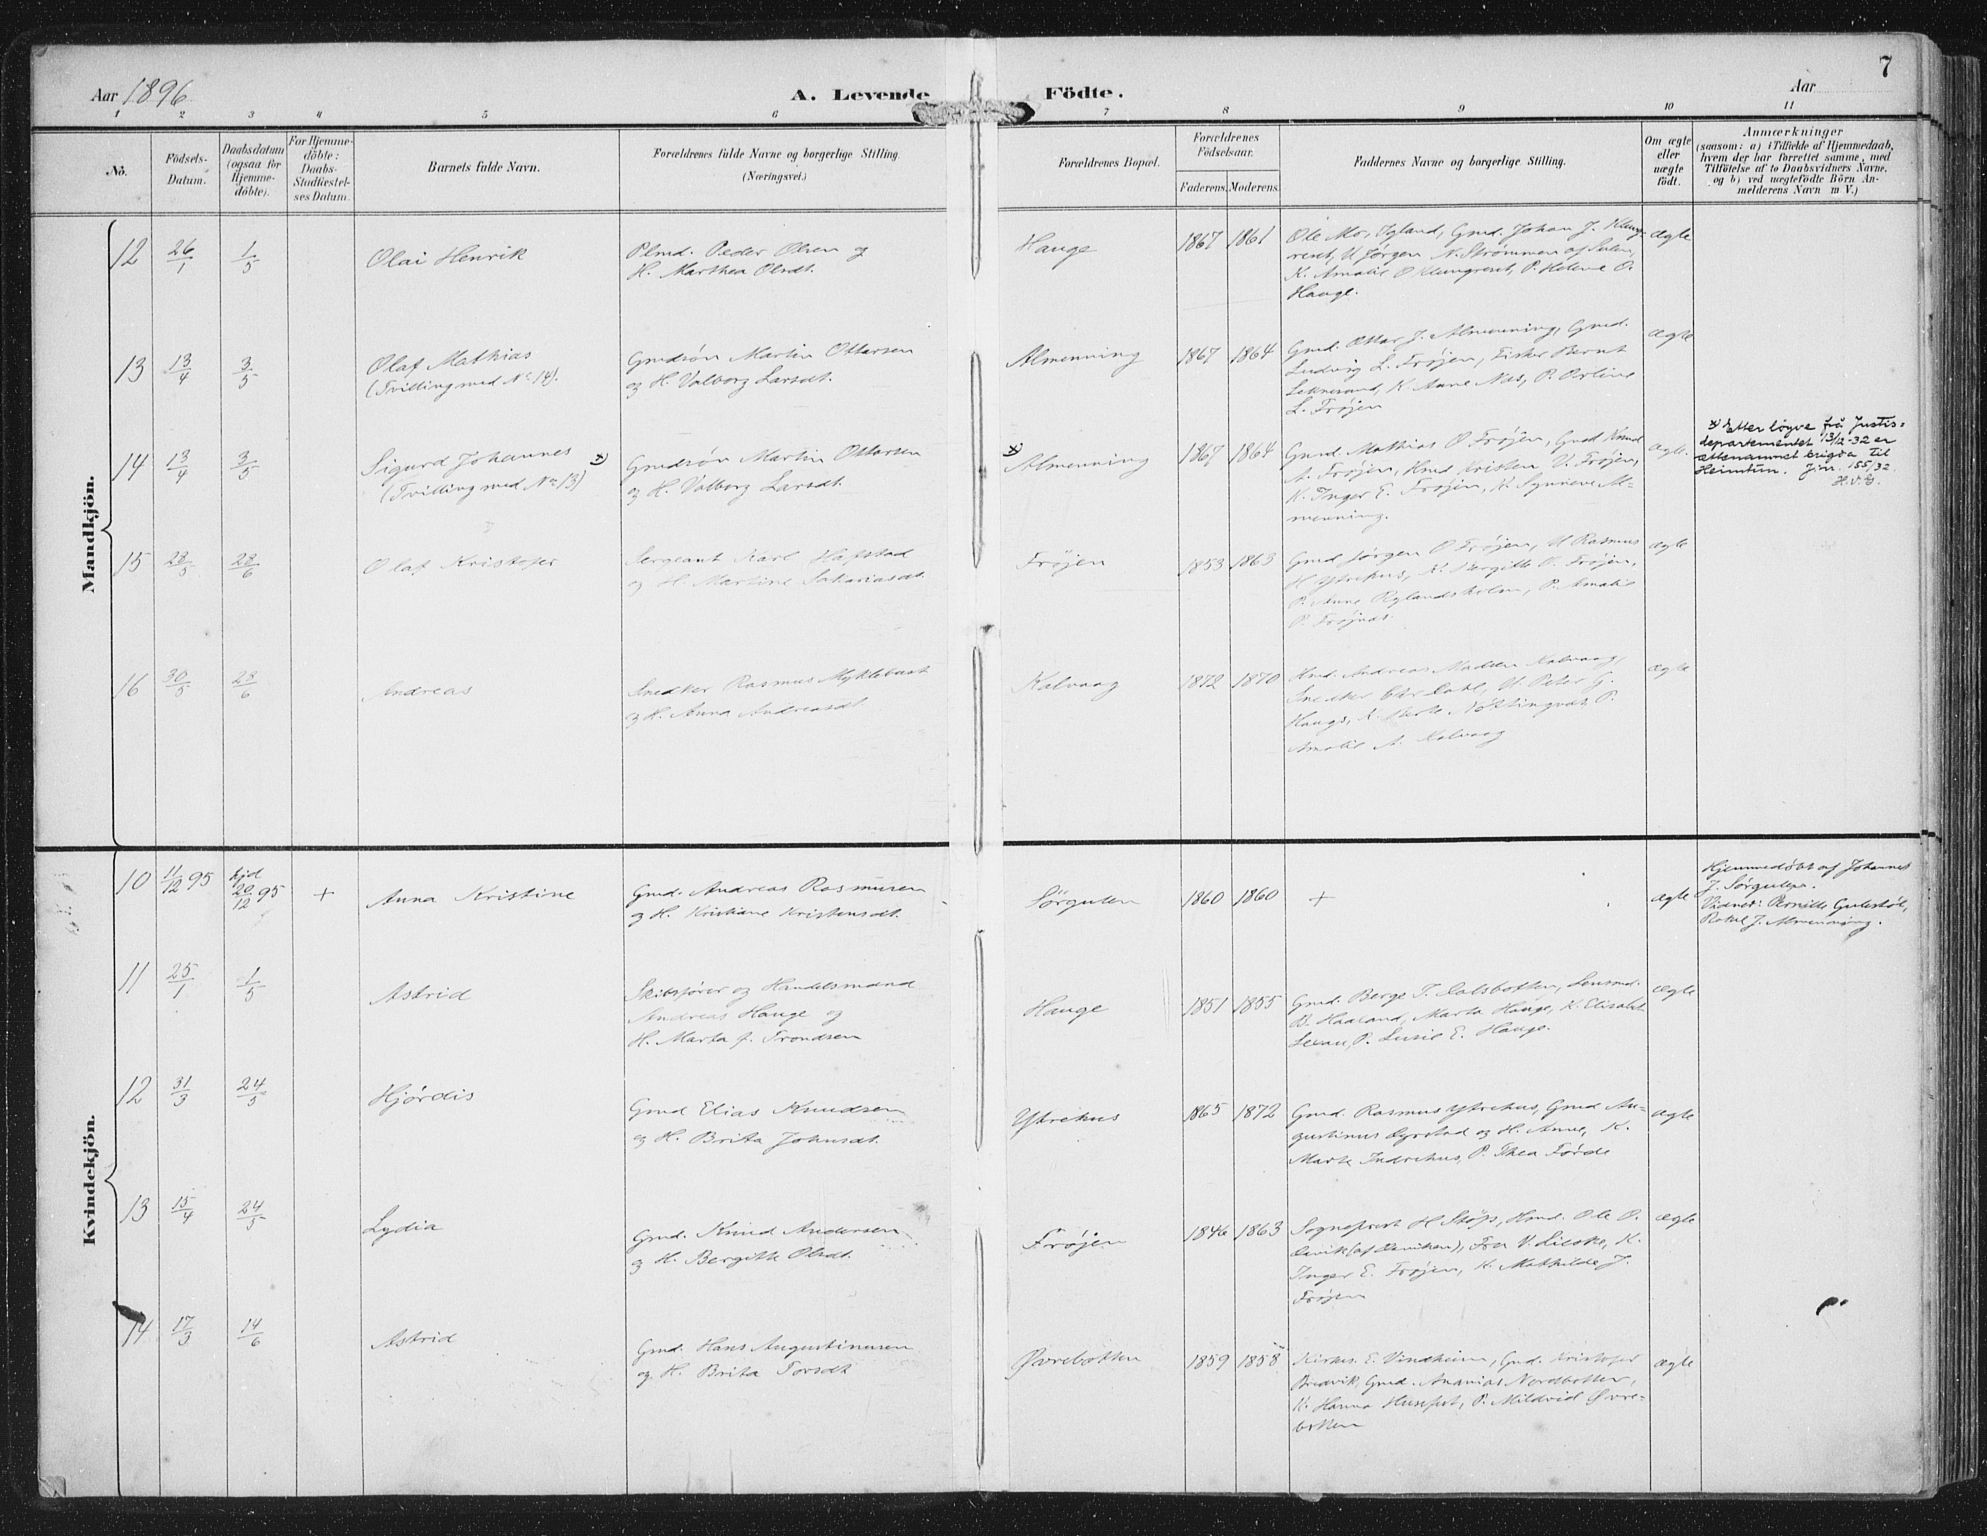 7
Aar 1896
A. Levende Födte.
Aar
1 2 3 4 5 6 7 8 9 10 11
No.
Födsels-
Datum.
Daabsdatum
(ogsaa för
Hjemme-
döbte).
For Hjemme-
döbte:
Daabs-
Stadfæstel-
ses Datum.
Barnets fulde Navn.
Forældrenes fulde Navne og borgerlige Stilling
(Næringsvei.)
Forældrenes Bopæl.
Forældrenes
Födselsaar.
Faderens. Moderens.
Faddernes Navne og borgerlige Stilling.
Om ægte
eller
uægte
födt.
Anmærkninger
(saasom: a) i Tilfælde af Hjemmedaab,
hvem der har forrettet samme, med
Tilföielse af to Daabsvidners Navne,
og b) ved uægtefödte Börn An-
melderens Navn m V.)
Mandkjön.
12 26/1 1/5
Olai Henrik
Plmd. Peder Olsen og
H. Marthea Olsdt.
Hauge
1867 1861
Ole Mo, Igland, Gmd. Johan J. Klung-
reset, U Jørgen N. Strømmen af Sulen,
K. Amalie O Klungreset, P. Helene O.
Hauge.
ægte
13 13/4 3/5
Olaf Mathias
(Tvilling med No 14).
Gmdsøn Martin Ottarsen
og H. Valborg Larsdt.
Almenning
1867 1864
Gmd. Ottar J. Almenning, Gmd.
Ludvig L. Frøjen, Fisker Bernt
K. Anne Nes, P. Orline
L. Frøjen
ægte
14 13/4 3/5
Sigurd Johannes x)
(Tvilling med No 13)
Gmdsøn Martin Ottarsen
og H. Valborg Larsdt.
x)
Almenning
1867 1864
Gmd. Mathias O Frøjen, Gmd Knud
A. Frøjen, Kmd Kristen V. Frøjen,
K. Inger E. Frøjen, K. Synneve Al-
menning.
ægte.
x) Etter løyve frå Justis-
departementet 13/2-32 er
ættenamnet brigda til
Heimtun. Jnr. 155/32.
H.V.G.
15 28/5 28/6
Olaf Kristofer
Sergeant Karl Hafstad
og H. Martine Sakariasdt.
Frøjen
1853 1863
Gmd Jørgen O Frøjen, U Rasmus
H Ytrehus, K. Bergitte O. Frøjen,
P. Anne Rylandsholm, P. Amalie
P. Frøjnes.
ægte
16 30/5 28/6
Andreas
Snedker Rasmus Myklebust
og H. Anna Andreasdt.
Kalvaag
1872 1870
Hmd. Andreas Madsen Kalvaag,
Snedker Chr. Dahl, U. Peter G.
Hauge, K. Berte Nøttingnes, P.
Amalie A. Kalvaag
ægte
Kvindekjön.
10 11/12 95
hjd
20/12 95
+
Anna Kristine
Gmd. Andreas Rasmusen
og H. Kristiane Kristensdt.
Sørgulen
1860 1860
+
ægte
Hjemmedøbt af Johannes
J. Sørgulen.
Vidner: Pernille Gulestøl,
Rakel J. Almenning.
11 25/1 1/5
Astrid
Skibsfører og Handelsmand
Andreas Hauge og
H. Marta f. Trondsen
Hauge
1851 1855
Gmd. Berge T. Dalsbotten, Lensmd.
B. Haaland, Marta Hauge, K. Elisabet
Lexau, P. Lusie E. Hauge.
ægte
12 31/3 24/5
Hjørdis
Gmd Elias Knudsen
og H. Brita Johnsdt.
Ytrehus
1865 1872
Gmd. Rasmus Ytrehus, Gmd Au-
gustinus Dyrstad og H. Anne, K.
Marte Indrehus, P. Thea Førde
ægte
13 15/4 24/5
Lydia
Gmd. Knud Andersen
og H. Bergitte Olsdt.
Frøjen
1846 1863
Sogneprest H Støp, Hmd. Ole O.
Fru V. Lieske, K.
Inger E. Frøjen, K. Mathilde J.
Frøjen
ægte
14 17/3 14/6
Astrid
Gmd. Hans Augustinusen
og H. Brita Torsdt
Øvrebotten
1859 1858
Kirkes. E. Vindheim, Gmd. Kristofer
Bredvik, Gmd. Ananias Nordbotten,
K. Hanna Husefest, P. Mildrid Øvre-
botten
ægte